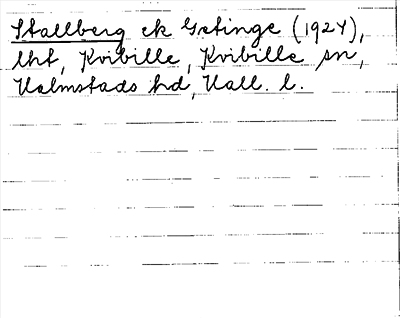 Stallberg ek Getinge (1924),
lht, Kvibille, Kvibille sn,
Halmstads hd, Hall. l.